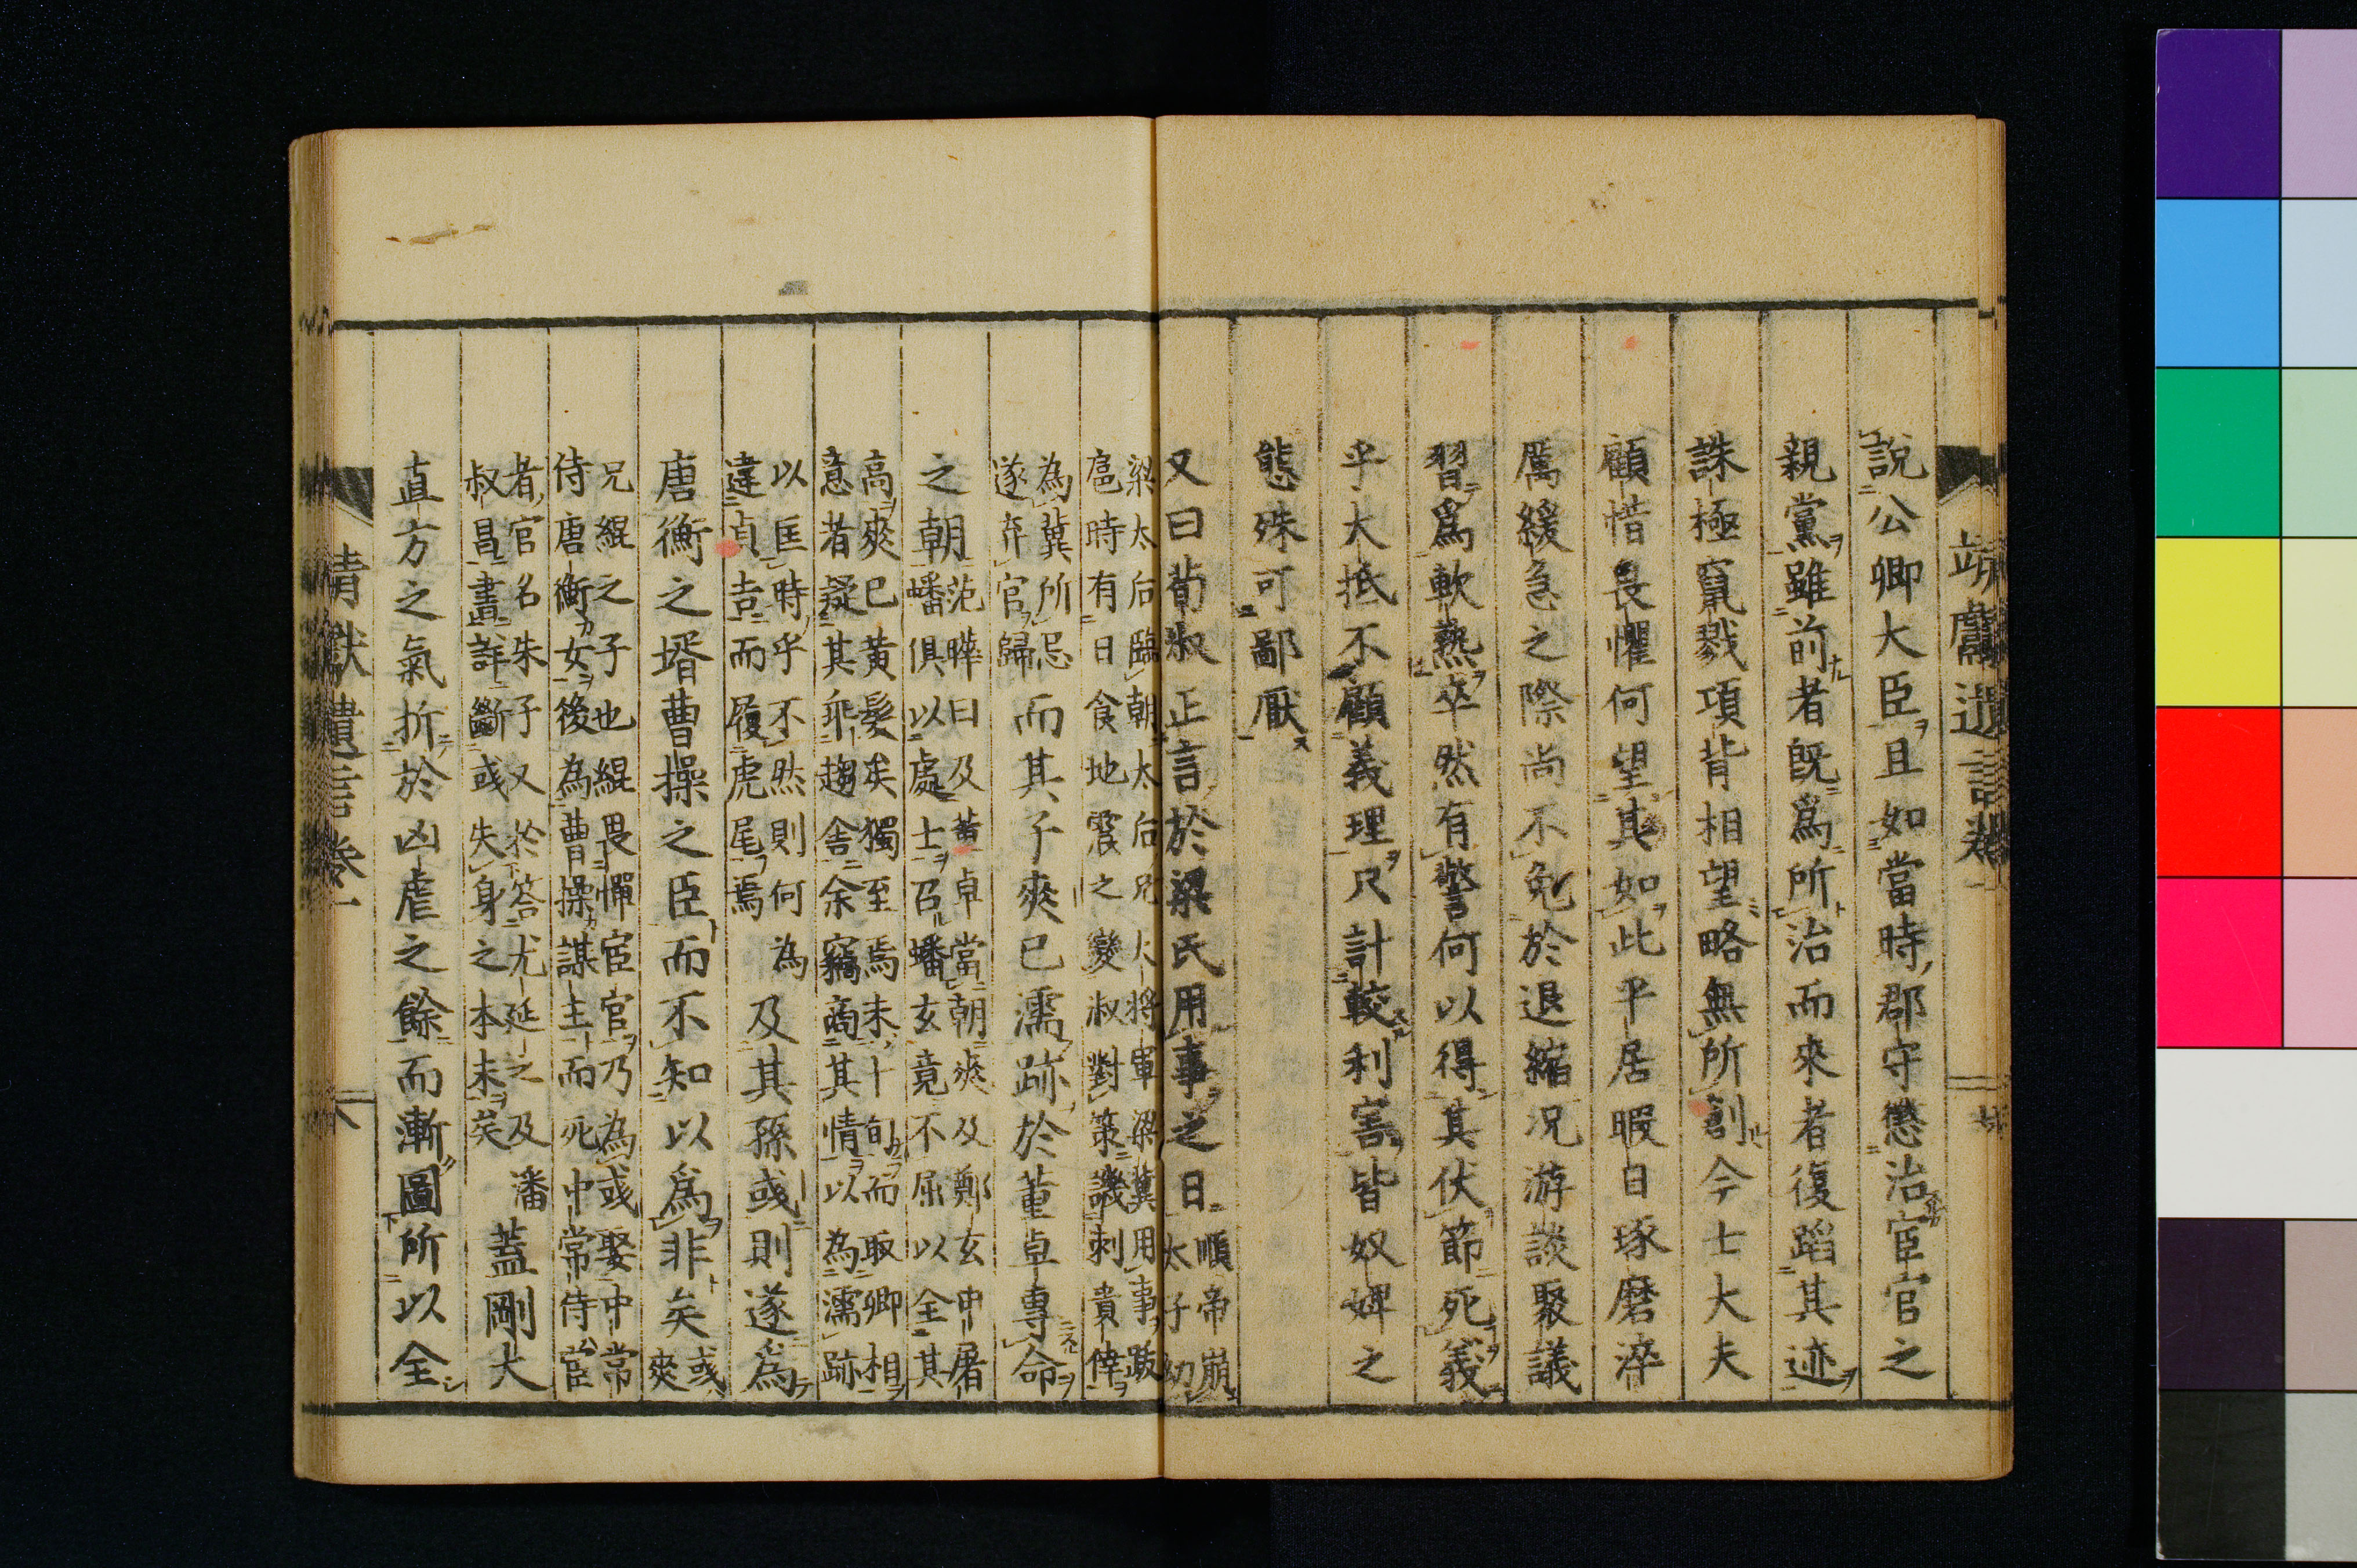 說公卿大臣且如當時郡守懲治宦官之
親黨雖前者既爲所治而來者復蹈其迹
誅極竄戮項背相望略無所創今士大夫
顧惜畏懼何望其如此平居暇日琢磨淬
厲緩急之際尚不免於退縮况游談聚議
習爲軟熟卒然有警何以得其伏節死義
乎大抵不顧義理只計較利害皆奴婢之
態殊可鄙厭
又曰荀淑正言於梁氏用事之日順帝崩
太子幼
梁太后臨朝太后兄大将軍梁冀用事跋
扈時有日食地震之變叔對策譏刺貴倖
為冀所忌
遂弃官歸而其子爽已濡跡於董卓專命
之朝范曄曰及董卓當朝爽及鄭玄申屠
蟠俱以處士召蟠玄竟不屈以全其
高爽已黄髮矣獨至焉未十旬而取卿相
意者疑其乖趨舎余竊商其情以為濡跡
以匡時乎不然則何為
違貞吉而履虎尾焉及其孫彧則遂爲
唐衡之壻曹操之臣而不知以爲非矣彧
爽
兄緄之子也緄畏憚宦官乃為彧娶中常
侍唐衡女後為曹操謀主而死中常侍宦
者官名朱子又於答尤延之及潘
叔昌書詳斷彧失身之本末矣蓋剛大
直方之氣折於凶虐之餘而漸圖所以全
靖獻遺言卷一